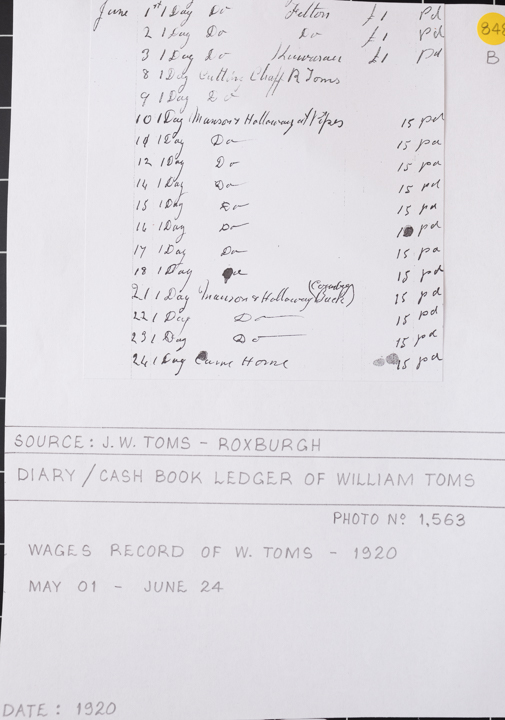 June 1st 1 Day Do Felton £1 Pd
848
2 1 Day Do Do £1 Pd
B
3 1 Day Do £1 Pd
8 1 Day Cuttin Chaff R Toms
9 1 Day Do
10 1 Day Manson & Holloway at Pipes 15 pd
11 1 Day Do 15 pd
12 1 Day Do 15 pd
14 1 Day Do 15 pd
15 1 Day Do 15 pd
16 1 Day Do 15 pd
17 1 Day Do 15 pd
18 1 Day Do 15 pd
21 1 Day Manson & Holloway 15 pd
22 1 Day Do 15 pd
23 1 Day Do 15 pd
24 1 Day Came Home 15 pd
SOURCE: J.W. TOMS - ROXBURGH
DIARY / CASH BOOK LEDGER OF WILLIAM TOMS
PHOTO Nº 1,563
WAGES RECORD OF W. TOMS - 1920
MAY 01 - JUNE 24
DATE: 1920